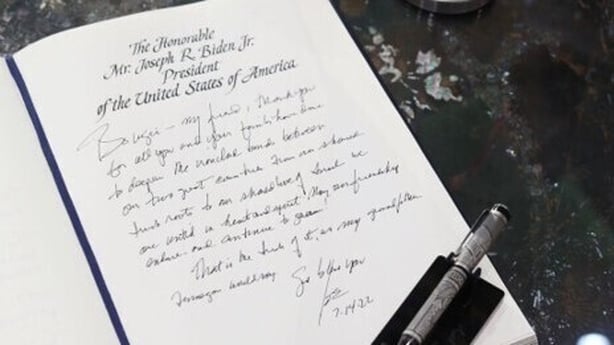 The Honorable
Mr. Joseph R. Biden Jr.
President
of the United States of America
- my friend, Thank you
for all you and your family have done
to deepen the bonds between
our two great countries. From our shared
roots to our shared love of Israel we
are united in heart and spirit. May our friendship
endure and continue to grow!
That is the truth of it, as my grandfather
Finnegan would say God bless you
Joe
7.14.22